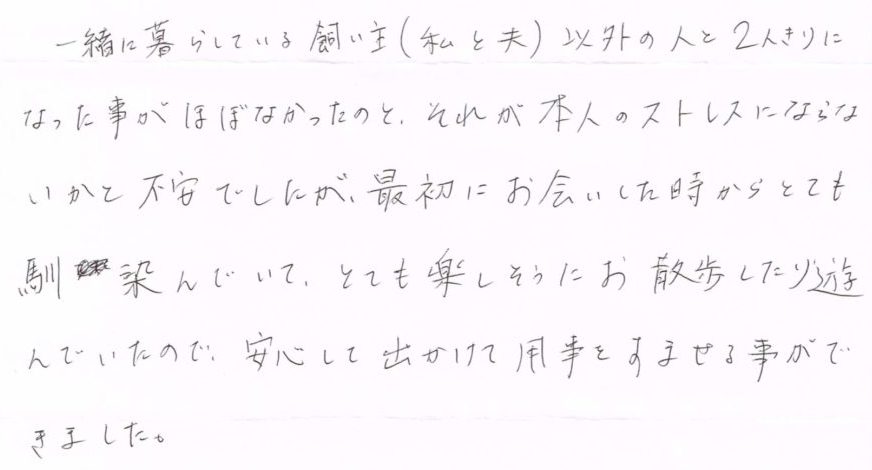 一緒に暮らしている飼い主(私と夫)以外の人と2人きりに
なった事がほぼなかったのと、それが本人のストレスにならな
いかと不安でしたが、最初にお会いした時からとても
馴染んでいて、とても楽しそうにお散歩したり遊
んでいたので、安心して出かけて用事をすませる事がで
きました。